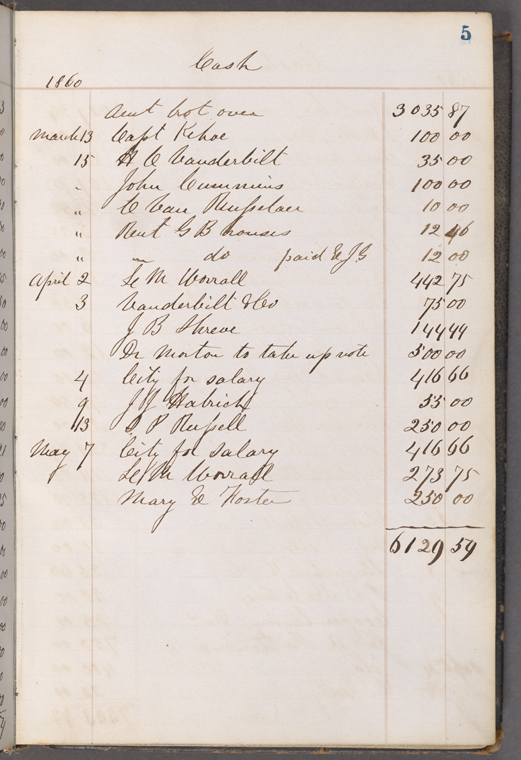 5
Cash
1860
Amt brot over 3035 87
March 13 Capt Kehoe 100 00
15 H C Vanderbilt 35 00
" John Cummins 100 00
" C Van Rensselaer 10 00
" Rent G B houses 12 46
" " do paid E J G 12 00
April 2 Le M Worrall 442 75
3 Vanderbilt & Co 75 00
J B Shreve 144 44
Dr Morton to take up note 500 00
4 City for salary 416 66
9 J J 55 00
13 S P Russell 250 00
May 7 City for salary 416 66
Le M Worrall 273 75
Mary E Foster 250 00
6129 59